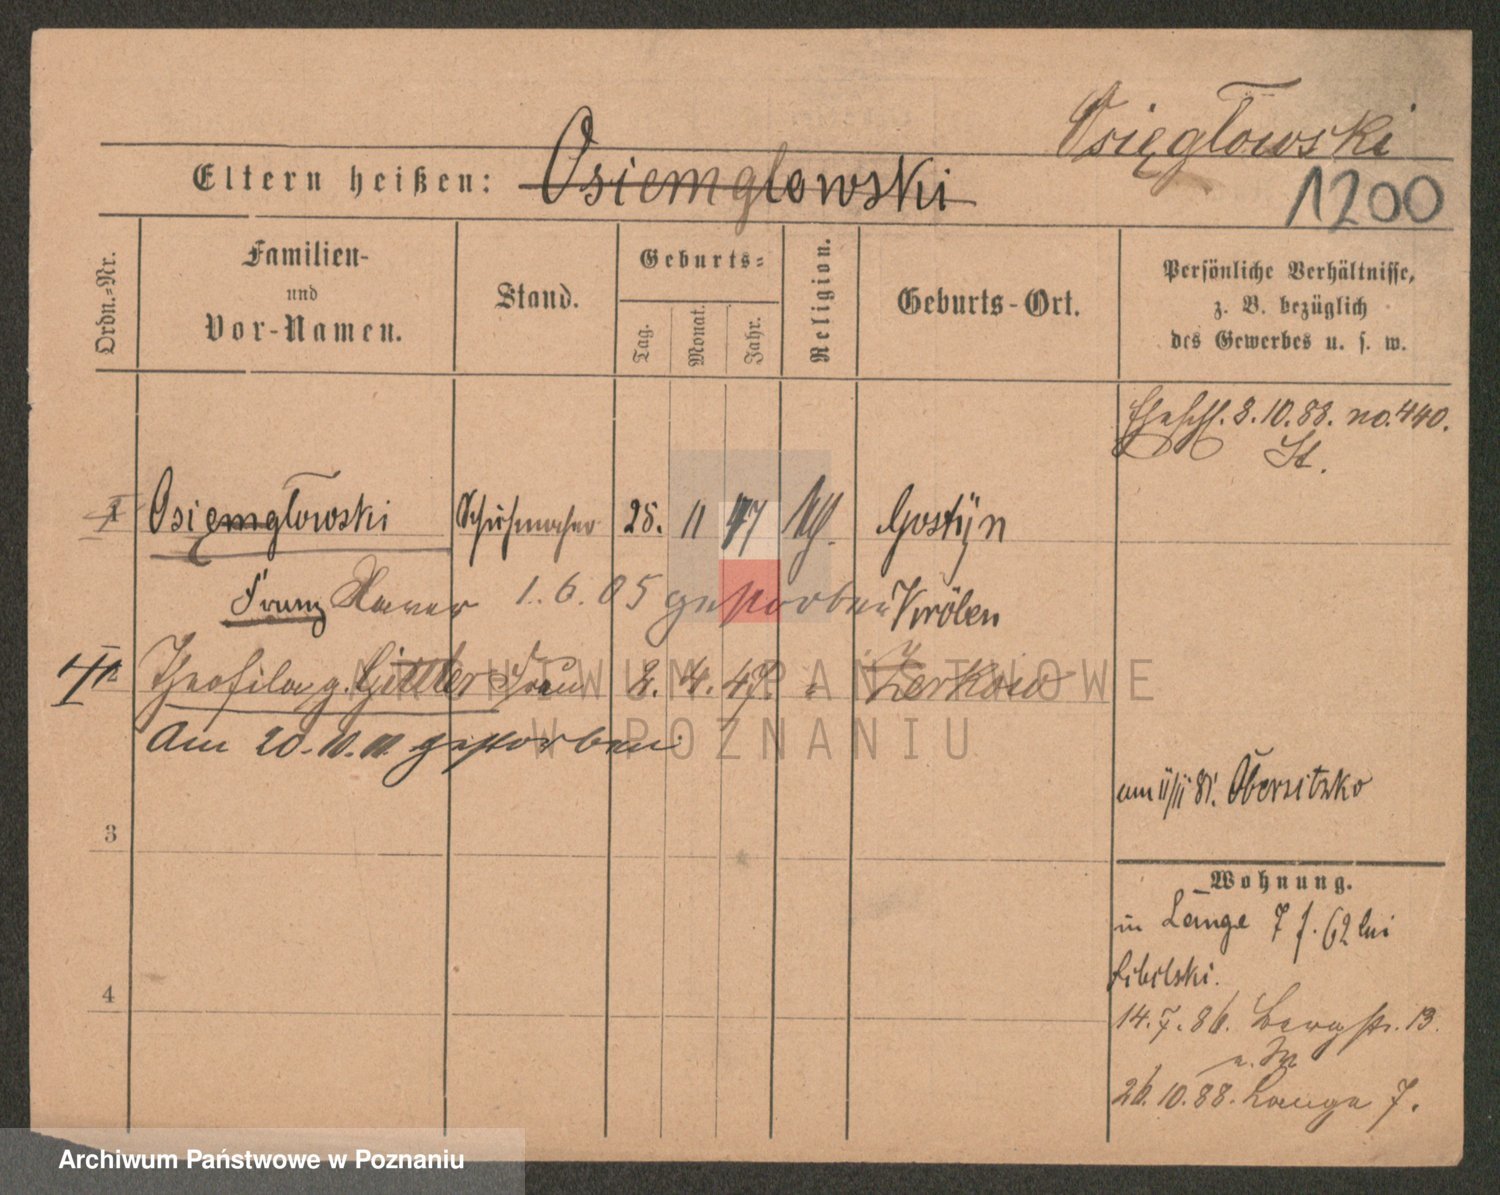 Osięgłowski
Eltern heißen: Osiemglowski
1200
Ordn.-Nr.
Familien-
und
Vor-Namen.
Stand.
Geburts-
Tag.
Monat.
Jahr.
Religion.
Geburts-Ort.
Persönliche Verhältnisse,
z. B. bezüglich
des Gewerbes u. s. w.
Eheschl. 8.10.88. no. 440.
St.
1 Osięmgłowski Schuhmacher 28. 11 47 Gostÿn
Franz Xaver 1.6.05 gestorben Kröben
2 Theofila g. Frau 2. 4. 47. Zerkow
Am 20.10.11. gestorben
am 11/11 81. Obersitzko
3
Wohnung.
in Lange 7 f. 62 bei
4
14.7.86. Bergstr. 13.
26.10.88. Lange 7.
ARCHIWUM PAŃSTWOWE
W POZNANIU
Archiwum Państwowe w Poznaniu